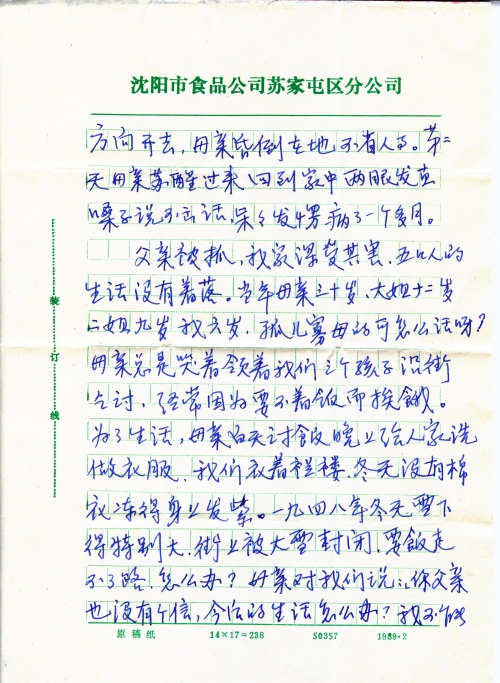 沈阳市食品公司苏家屯区分公司
方向开去，母亲昏倒在地不省人事。第二
天母亲苏醒过来回到家中两眼发直
嗓子说不出话，呆呆发愣病了一个多月。
父亲被抓，我家深受其害，五口人的
生活没有着落。当年母亲三十岁，大姐十二岁
二姐九岁我六岁，孤儿寡母的可怎么活呀？
母亲总是哭着领着我们三个孩子沿街
乞讨，经常因为要不着饭而挨饿。
为了生活，母亲白天讨饭晚上给人家洗
做衣服，我们衣着褴褛，冬天没有棉
衣冻得身上发紫。一九四八年冬天雪下
得特别大，街上被大雪封闭，要饭走
不了路，怎么办？母亲对我们说：你父亲
也没有个信，今后的生活怎么办？我不能
装订线
原稿纸 14×17=238 50357 1989·2